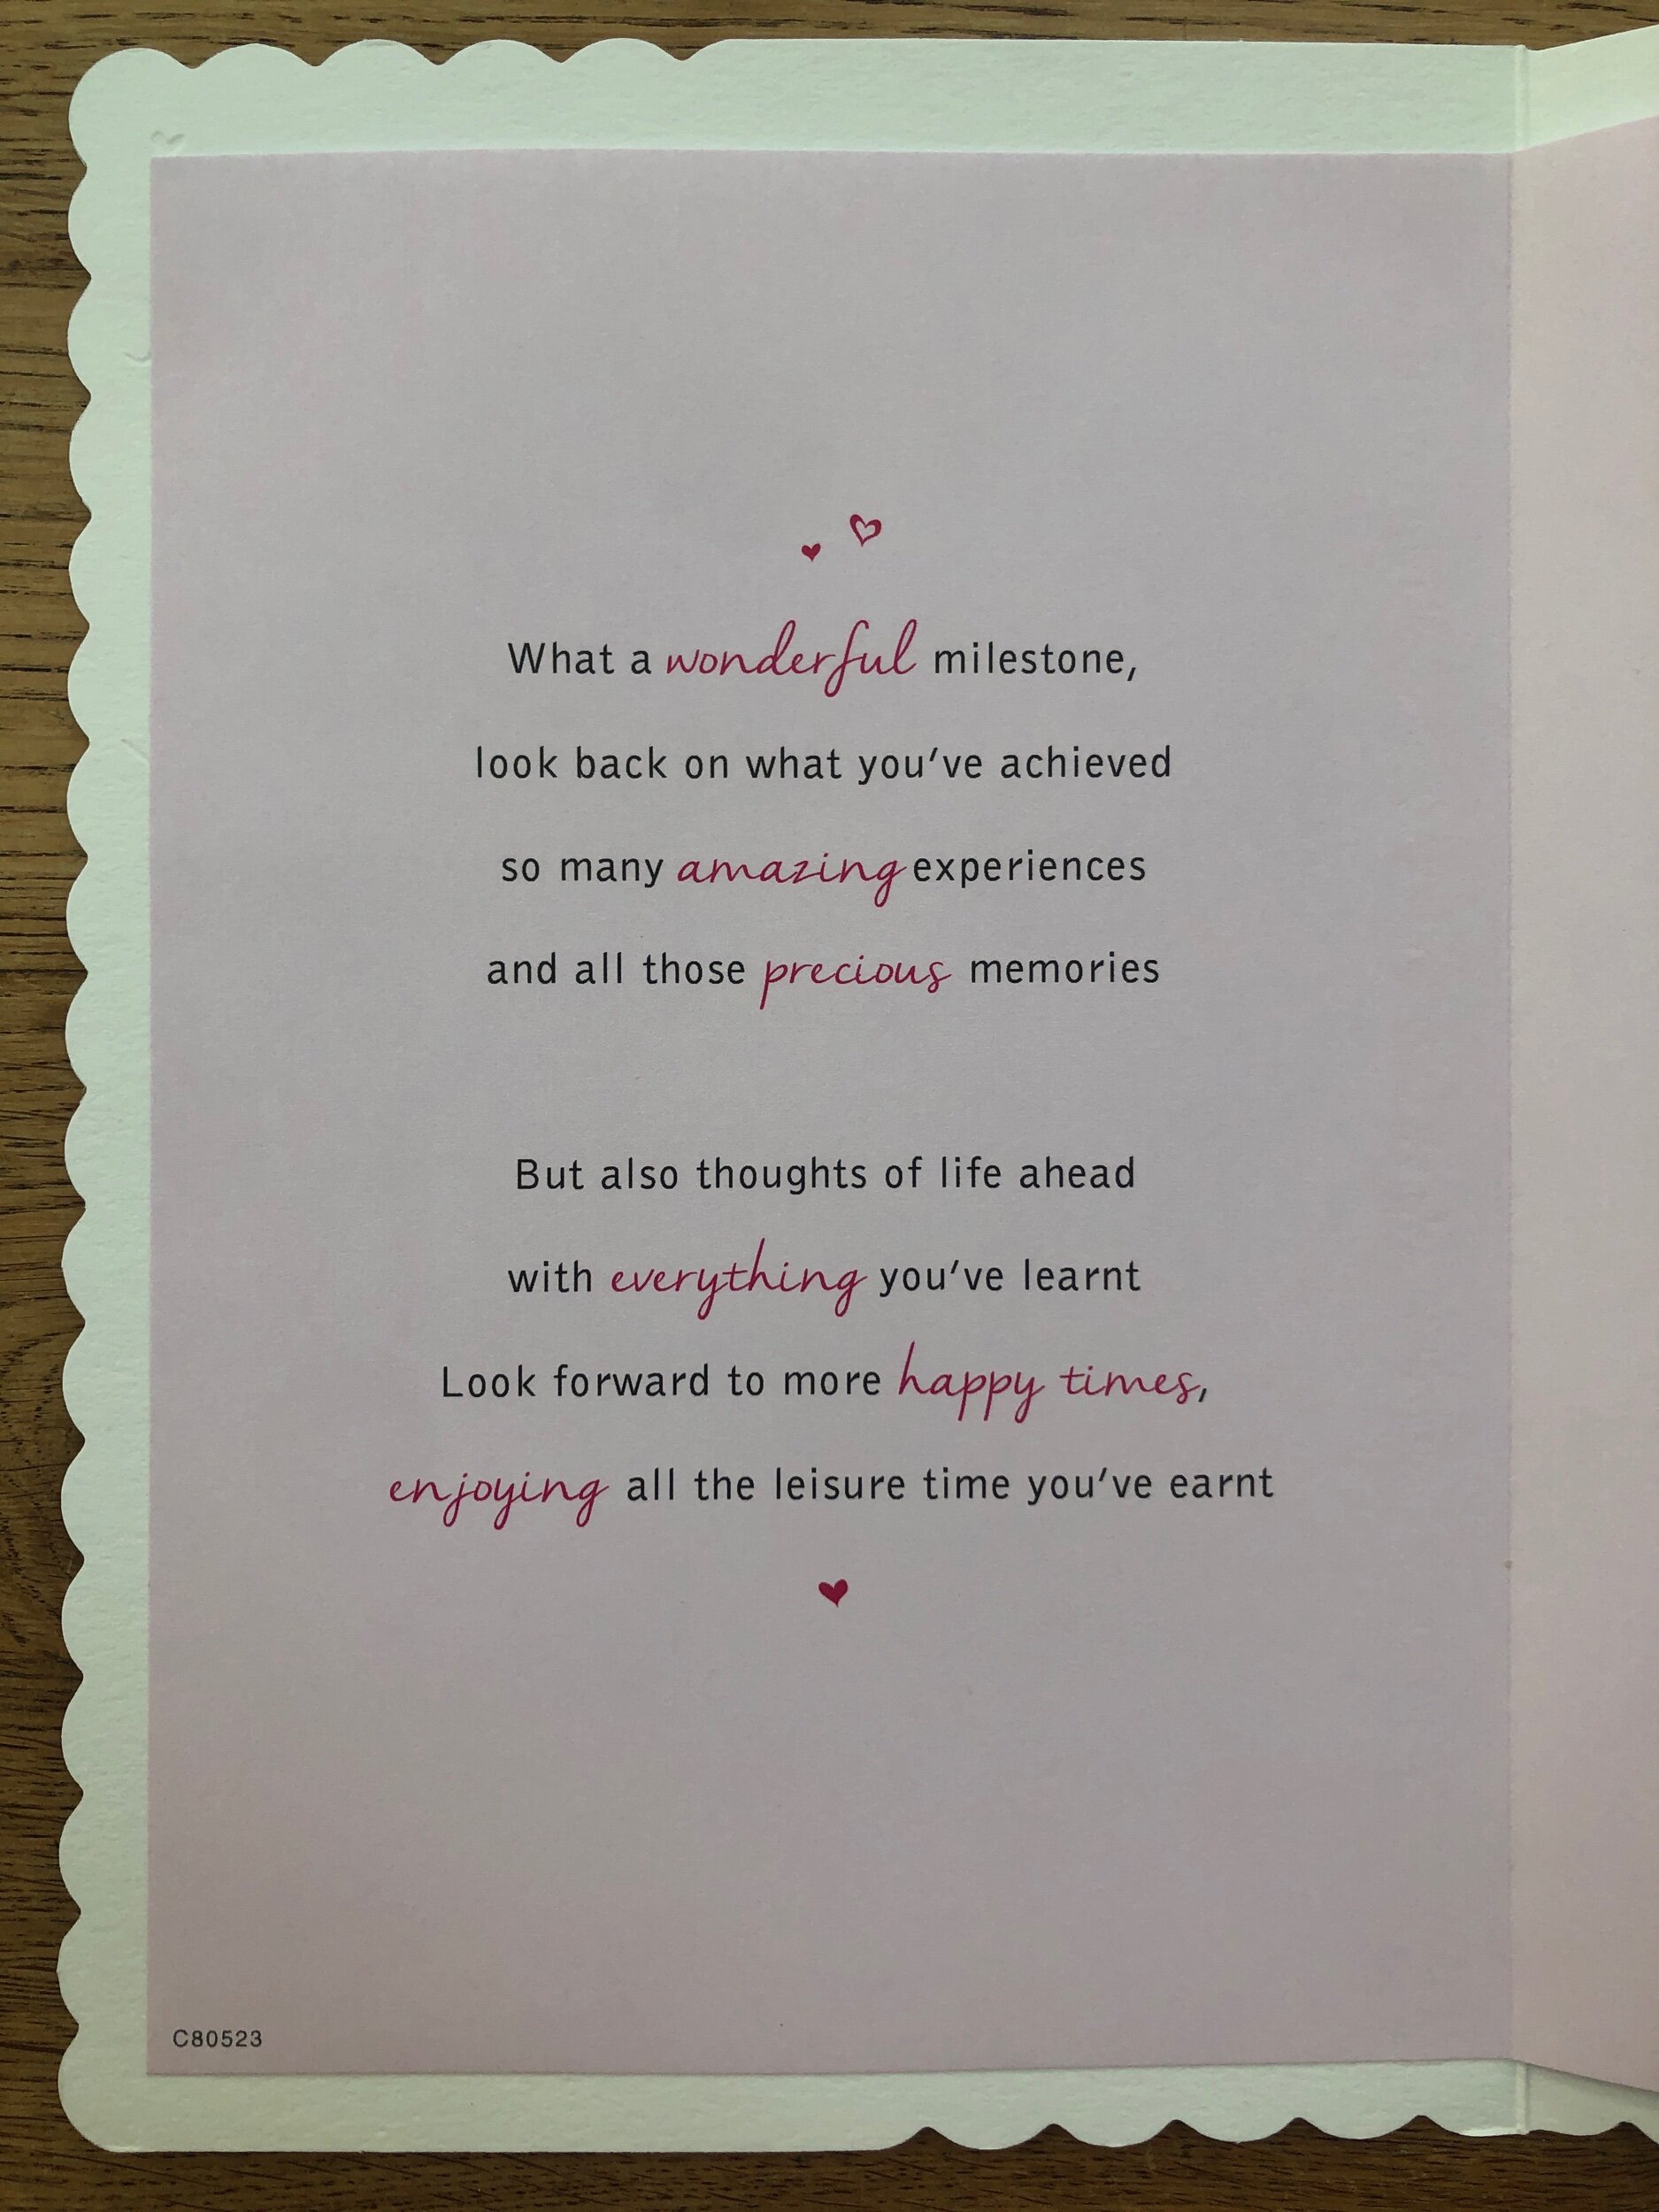 What a wonderful milestone,
look back on what you've achieved
so many amazing experiences
and all those precious memories
But also thoughts of life ahead
with everything you've learnt
Look forward to more happy times,
enjoying all the leisure time you've earnt
C80523